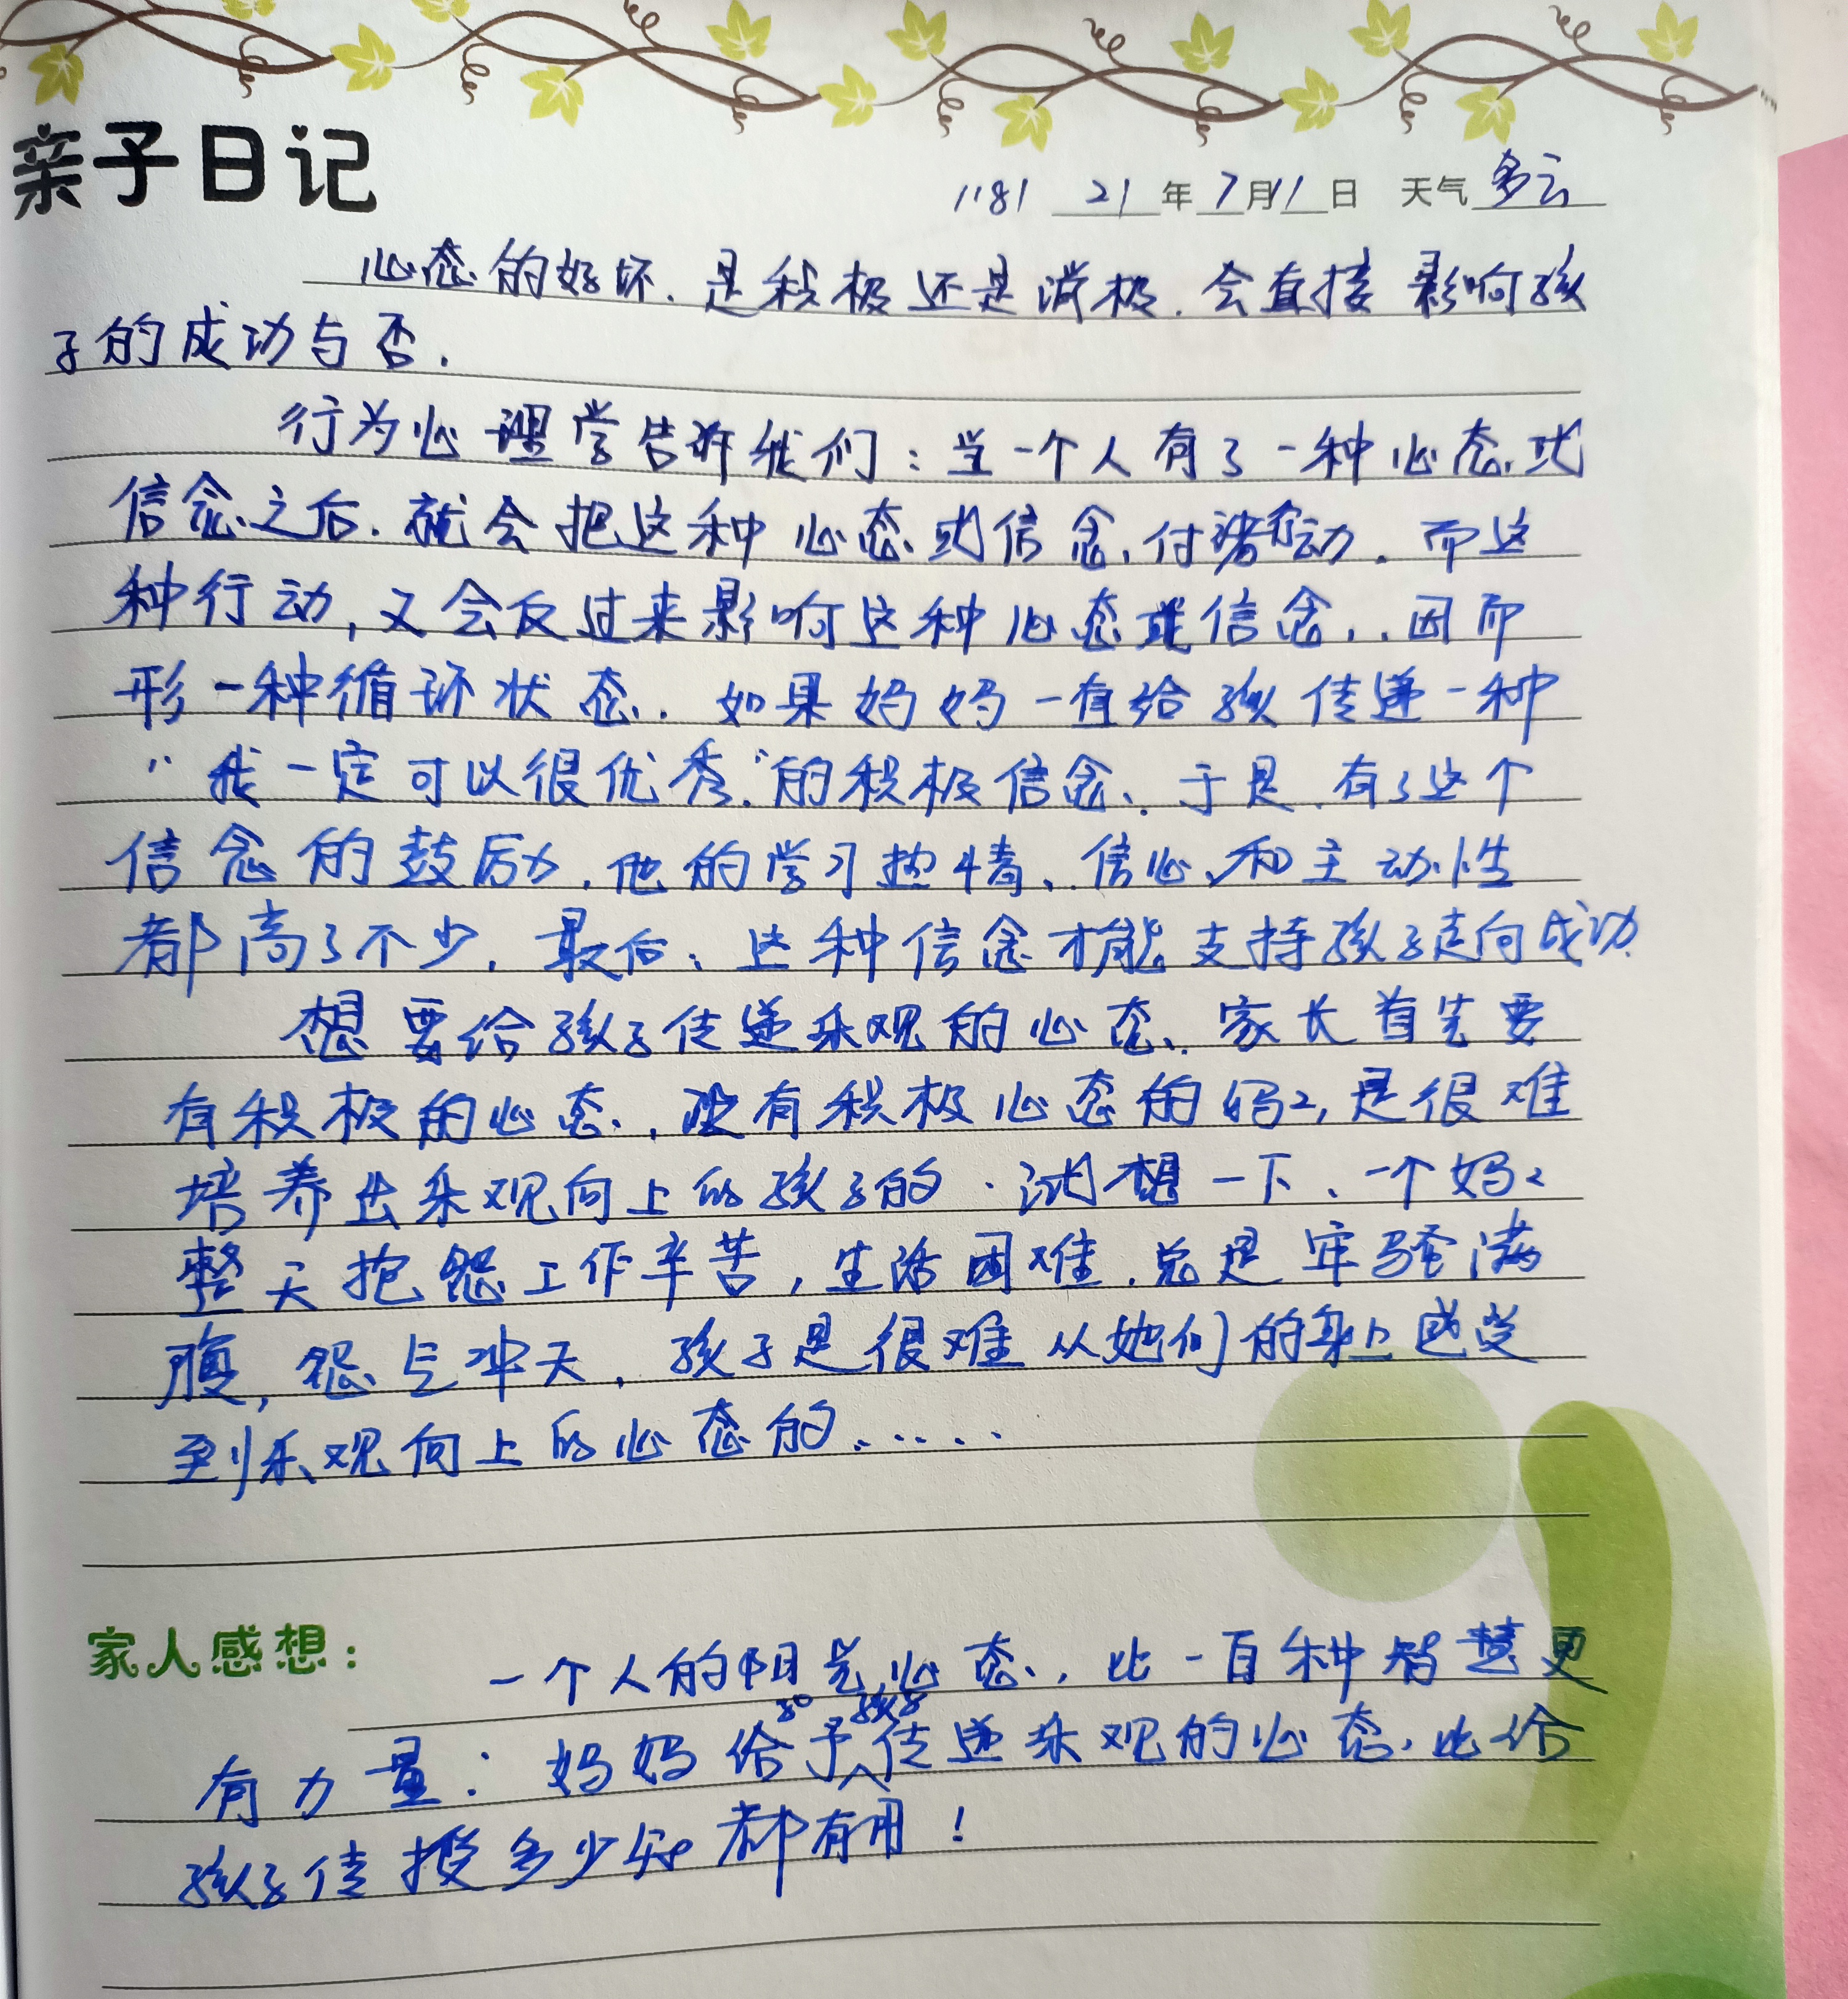 亲子日记
1181 21年7月11日 天气多云
心态的好坏.是积极还是消极.会直接影响孩
子的成功与否.
行为心理学告诉我们:当一个人有了一种心态或
信念之后.就会把这种心态或信念,付诸行动.而这
种行动,又会反过来影响这种心态或信念,.因而
形一种循环状态.如果妈妈一直给孩传递一种
"我一定可以很优秀."的积极信念、于是.有了这个
信念的鼓励,他的学习热情、信心、和主动性
都高了不少.最后、这种信念才能支持孩子走向成功.
想要给孩子传递乐观的心态、家长首先要
有积极的心态.,没有积极心态的妈2,是很难
培养出乐观向上的孩子的.试想一下、一个妈2
整天抱怨工作辛苦,生活困难.总是牢骚满
腹,怨气冲天,孩子是很难从她们的身上感受
到乐观向上的心态的......
家人感想:
一个人的阳光心态,比一百种智慧更
有力量:妈妈给予孩子传递乐观的心态,比给
孩子传授多少知都有用!